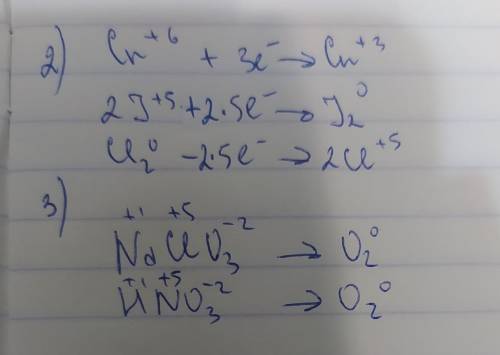 2) Cr⁺⁶ + 3e⁻ → Cr⁺³
2J⁺⁵ + 2·5e⁻ → J₂⁰
Cl₂⁰ - 2·5e⁻ → 2Cl⁺⁵
3) Na⁺¹Cl⁺⁵O₃⁻² → O₂⁰
H⁺¹N⁺⁵O₃⁻² → O₂⁰